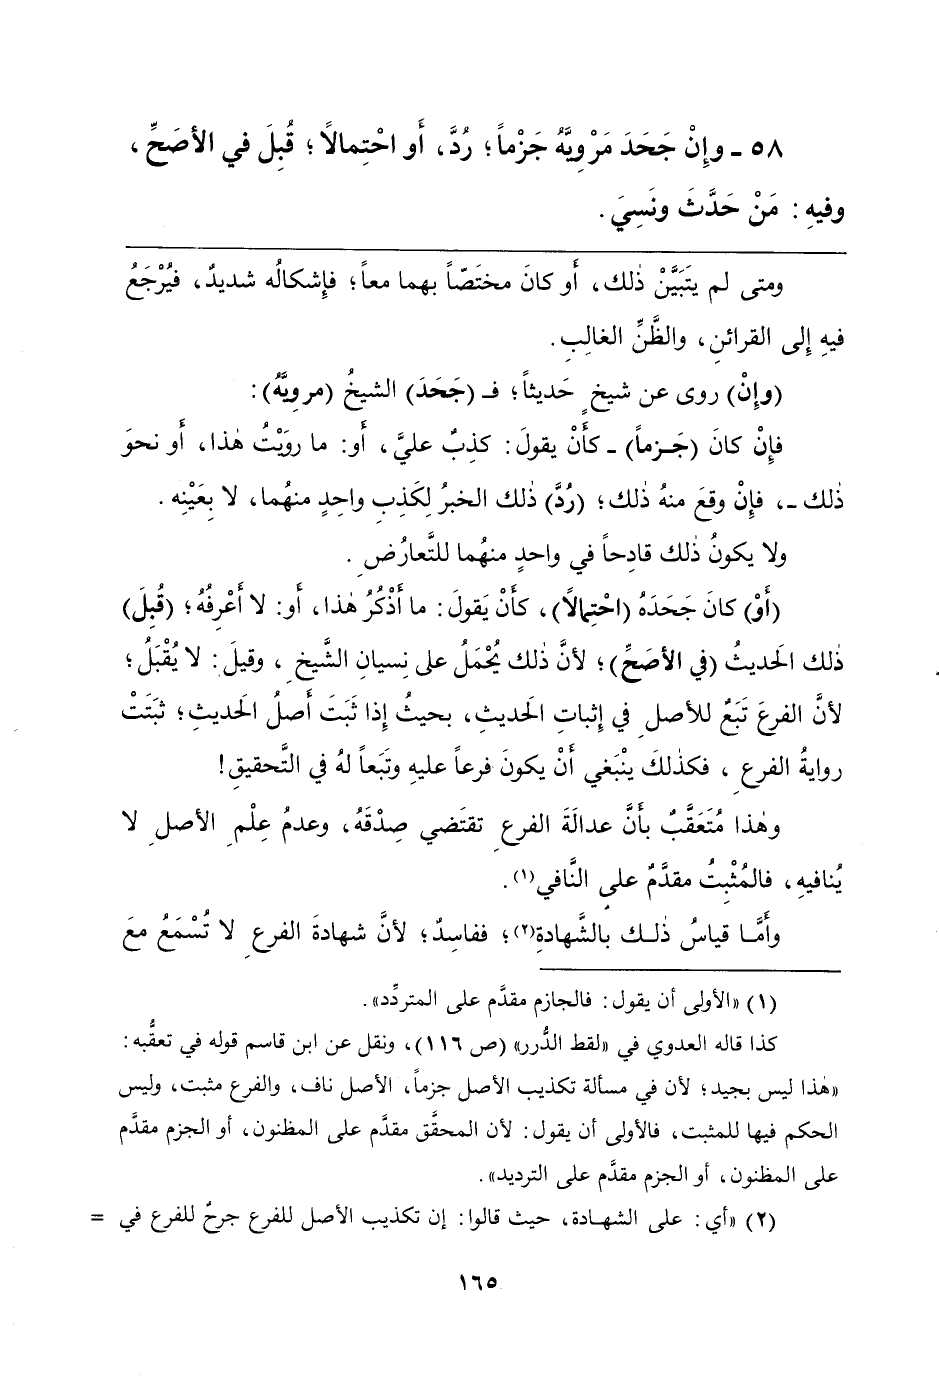 ٥٨ ـ وإِنْ جَحَدَ مَرْوِيَّهُ جَزْماً؛ رُدَّ، أَو احْتِمالاً؛ قُبِلَ في الأصَحِّ،
وفيهِ: مَنْ حَدَّثَ ونَسِيَ.
ومتى لم يتبَيَّنْ ذٰلك، أَو كانَ مختَصّاً بهما معاً؛ فإِشكالُه شديدٌ، فيُرْجَعُ
فيهِ إِلى القرائنِ، والظَّنِّ الغالِبِ.
(وإِنْ) روى عن شيخٍ حَديثاً؛ فـ (جَحَدَ) الشيخُ (مرويَّهُ):
فإِنْ كانَ (جَـزماً) ـ كأَنْ يقولَ: كذِبٌ عليَّ، أَو: ما روَيْتُ هٰذا، أَو نحوَ
ذٰلك ـ، فإِنْ وقعَ منهُ ذٰلك؛ (رُدَّ) ذٰلك الخبرُ لِكَذِبِ واحِدٍ منهُما، لا بِعَيْنِه.
ولا يكونُ ذٰلك قادحاً في واحدٍ منهُما للتَّعارُضِ.
(أَوْ) كانَ جَحَدَهُ (احْتِمالاً)، كأَنْ يَقولَ: ما أَذْكُرُ هٰذا، أَو: لا أَعْرِفُهُ؛ (قُبِلَ)
ذٰلك الحَديثُ (في الأصَحِّ)؛ لأنَّ ذٰلك يُحْمَلُ على نِسيانِ الشَّيخِ، وقيلَ: لا يُقْبَلُ؛
لأنَّ الفرعَ تَبَعٌ للأصلِ في إِثباتِ الحَديثِ، بحيثُ إِذا ثَبَتَ أَصلُ الحَديثِ؛ ثَبَتَتْ
روايةُ الفرعِ، فكذٰلكَ ينْبَغي أَنْ يكونَ فرعاً عليهِ وتَبَعاً لهُ في التَّحقيقِ!
وهٰذا مُتَعَقَّبٌ بأَنَّ عدالَةَ الفرعِ تقتَضي صِدْقَهُ، وعدمُ عِلْمِ الأصلِ لا
يُنافيهِ، فالمُثْبِتُ مقدَّمٌ على النَّافي(١).
وأَمَّـا قياسُ ذٰلـك بالشَّهادةِ(٢)؛ ففاسِدٌ؛ لأنَّ شهادةَ الفرعِ لا تُسْمَعُ معَ
(١) «الأولى أن يقول: فالجازم مقدَّم على المتردِّد».
كذا قاله العدوي في «لقط الدُّرر» (ص ١١٦)، ونقل عن ابن قاسم قوله في تعقُّبه:
«هٰذا ليس بجيد؛ لأن في مسألة تكذيب الأصل جزماً، الأصل ناف، والفرع مثبت، وليس
الحكم فيها للمثبت، فالأولى أن يقول: لأن المحقَّق مقدَّم على المظنون، أو الجزم مقدَّم
على المظنون، أو الجزم مقدَّم على الترديد».
(٢) «أي: على الشهـادة، حيث قالوا: إن تكذيب الأصل للفرع جرحٌ للفرع في =
١٦٥